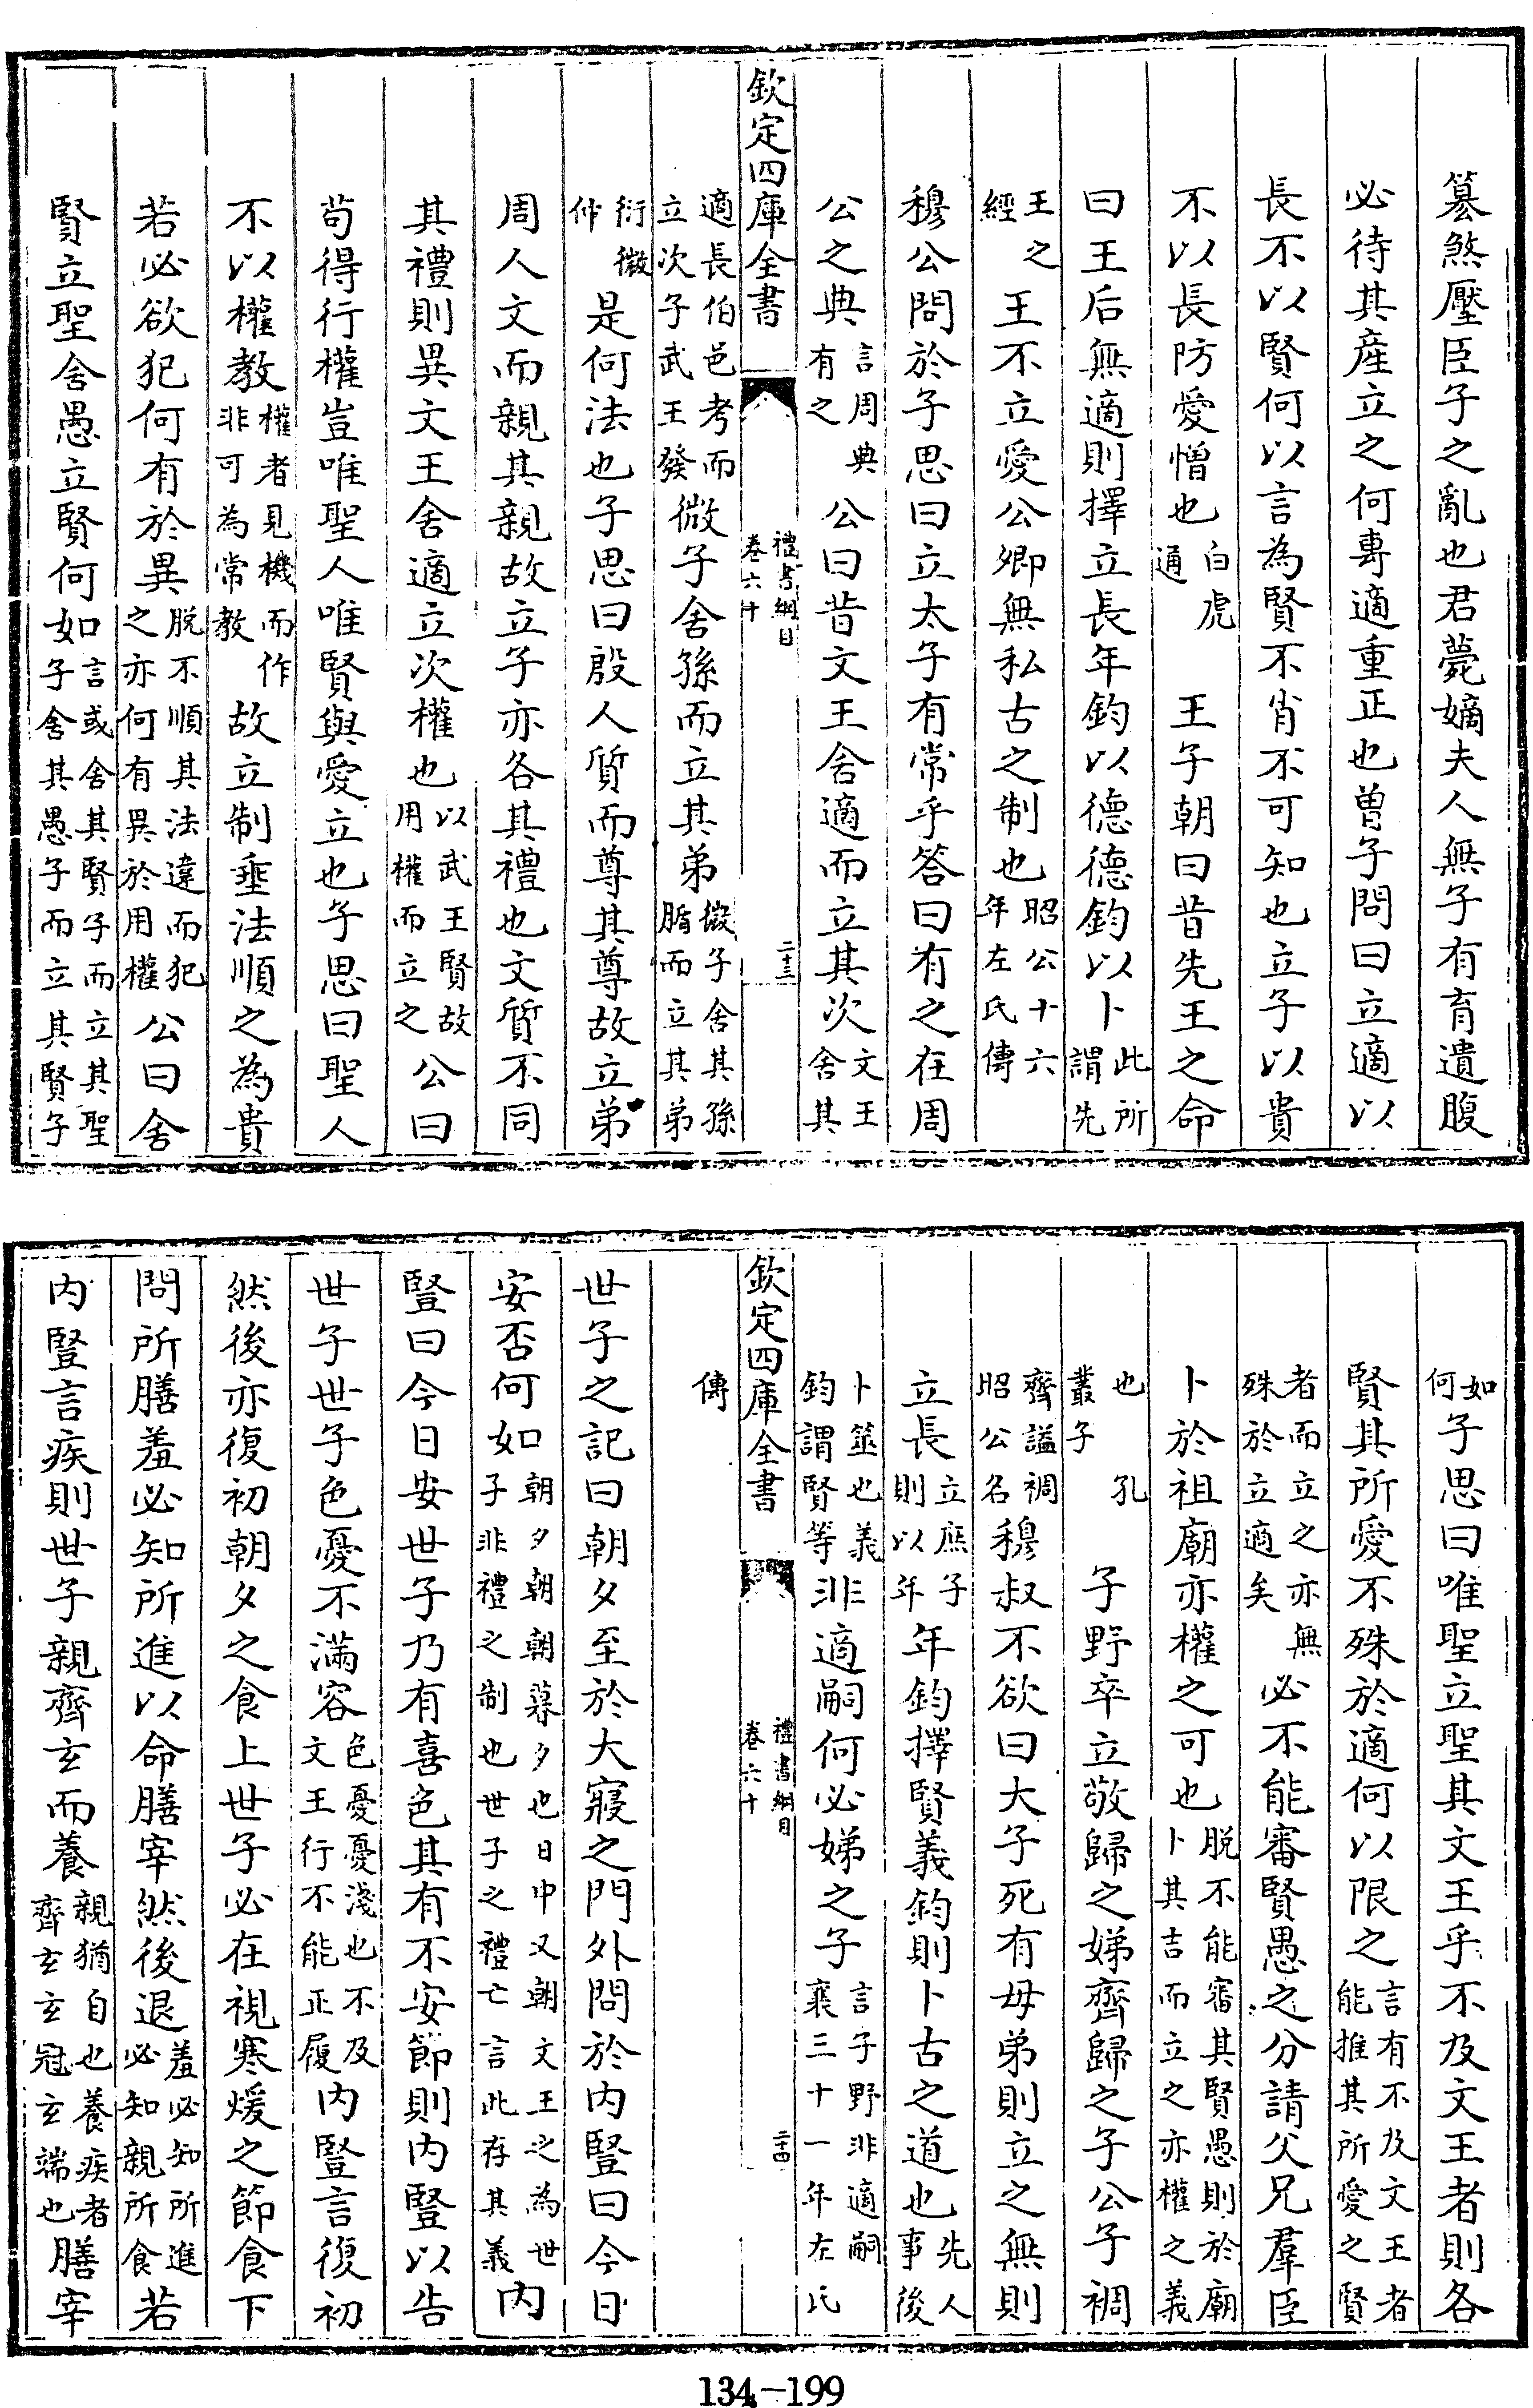 篡煞壓臣子之亂也君薨嫡夫人無子有育遺腹
必待其產立之何專適重正也曽子問曰立適以
長不以賢何以言為賢不肖不可知也立子以貴
不以長防愛憎也白虎通　王子朝曰昔先王之命
曰王后無適則擇立長年鈞以德德鈞以卜此所謂先
王之經　王不立愛公卿無私古之制也昭公十六年左氏傳
穆公問於子思曰立太子有常乎答曰有之在周
公之典言周典有之公曰昔文王舍適而立其次文王舍其
欽定四庫全書　禮書綱目卷六十　二十三
適長伯邑考而立次子武王發微子舍孫而立其弟微子舍其孫腯而立其弟
衍微仲是何法也子思曰殷人質而尊其尊故立弟
周人文而親其親故立子亦各其禮也文質不同
其禮則異文王舍適立次權也以武王賢故用權而立之公曰
苟得行權豈唯聖人唯賢與愛立也子思曰聖人
不以權教權者見機而作非可為常教故立制垂法順之為貴
若必欲犯何有於異脫不順其法違而犯之亦何有異於用權公曰舍
賢立聖舍愚立賢何如言或舍其賢子而立其聖子舍其愚子而立其賢子
如何子思曰唯聖立聖其文王乎不及文王者則各
賢其所愛不殊於適何以限之言有不及文王者能推其所愛之賢
者而立之亦無殊於立適矣必不能審賢愚之分請父兄羣臣
卜於祖廟亦權之可也脫不能審其賢愚則於廟卜其吉而立之亦權之義
也　孔叢子　子野卒立敬歸之娣齊歸之子公子裯
齊謚裯昭公名穆叔不欲曰大子死有母弟則立之無則
立長立庶子則以年年鈞擇賢義鈞則卜古之道也先人事後
卜筮也義鈞謂賢等非適嗣何必娣之子言子野非適嗣襄三十一年左氏
欽定四庫全書　禮書綱目卷六十　二十四
傳
世子之記曰朝夕至於大寢之門外問於內豎曰今日
安否何如朝夕朝朝暮夕也日中又朝文王之為世子非禮之制也世子之禮亡言此存其義內
豎曰今日安世子乃有喜色其有不安節則內豎以告
世子世子色憂不滿容色憂憂淺也不及文王行不能正履內豎言復初
然後亦復初朝夕之食上世子必在視寒煖之節食下
問所膳羞必知所進以命膳宰然後退羞必知所進必知親所食若
內豎言疾則世子親齊玄而養親猶自也養疾者齊玄玄冠玄端也膳宰
134-199